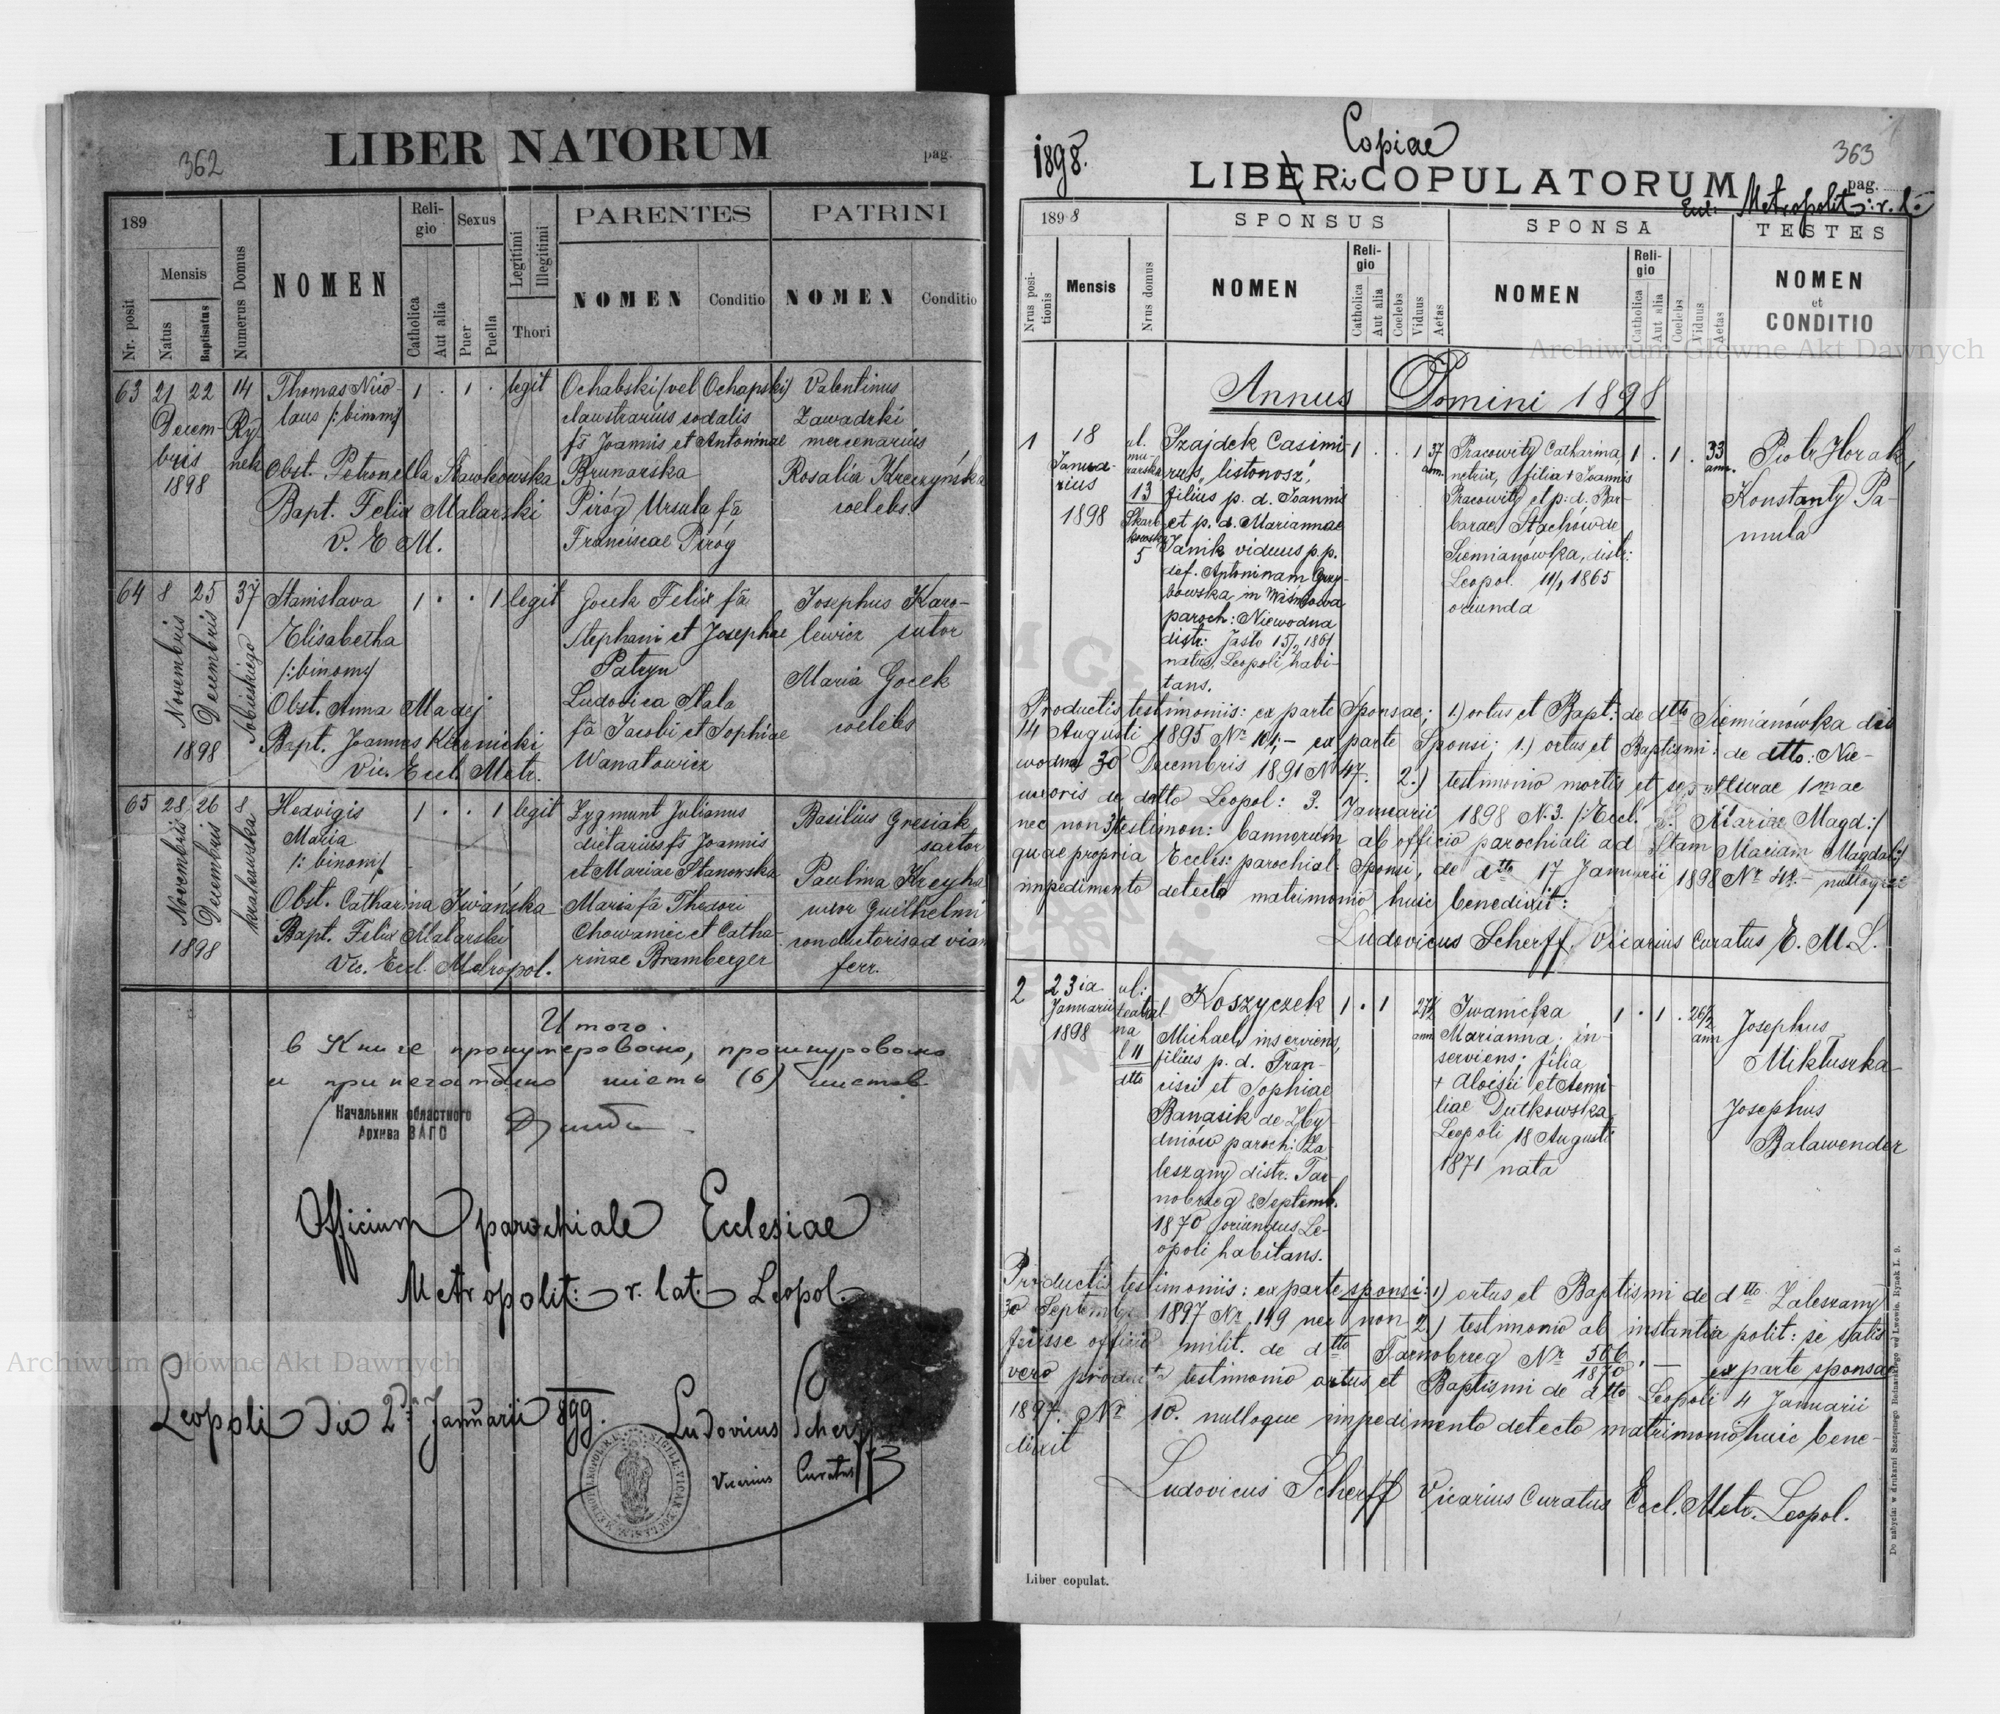 LIBER NATORUM
362
pag.
189
Mensis
Nr. posit
Natus
Baptisatus
Numerus Domus
NOMEN
Reli-
gio
Catholica
Aut alia
Sexus
Puer
Puella
Legitimi
Illegitimi
Thori
PARENTES
NOMEN
Conditio
PATRINI
NOMEN
Conditio
63 21 22 14
Decem-
bris
1898
Ry-
nek
Thomas Nico-
laus /: binom/
Obst. Petronella Sławkowska
Bapt. Felix Malarski
V. E M.
1 . 1 . legit
Ochabski /vel Ochapski/
claustrarius sodalis
fs Joannis et Antoninae
Brunarska
Piróg Ursula fa
Franciscae Piróg
Valentinus
Zawadzki
mercenarius
Rosalia Kreczyńska
coelebs.
64 8 25 37
Novembris
Decembris
1898
Sobieskiego
Stanislava
Elisabetha
/: binom/
Obst. Anna Madej
Bapt. Joannes Kiernicki
Vic. Eccl. Metr.
1 . . 1 legit
Gocek Felix fs
Stephani et Josephae
Patryn
Ludovica Stala
fa Jacobi et Sophiae
Wanatowicz
Josephus Karo-
lewicz sutor
Maria Gocek
coelebs
65 28 26 8
Novembris
Decembris
1898
Krakowska
Hedvigis
Maria
/: binom/
Obst. Catharina Iwańska
Bapt. Felix Malarski
Vic. Eccl. Metropol.
1 . . 1 legit
Zygmunt Julianus
dietarius fs Joannis
et Mariae Stanowska
Maria fa Thedori
Chowaniec et Catha-
rinae Bramberger
Basilius Gresiak
sartor
Paulina Kreyha
uxor Guilhelmi
conductoris ad viam
ferr.
Итого.
в Книге пронумеровано, прошнуровано
и припечатано шесть (6) листов
Начальник областного
Архива ЗАГС
Officium parochiale Ecclesiae
Metropolit: r. lat. Leopol.
Leopoli Die 2 Januarii 899.
Ludovicus Scherff
Vicarius Curatus
1898.
Copiae
LIBERi COPULATORUM
363
pag.
Eccl: Metropolit: r. l.
1898
Nrus posi-
tionis
Mensis
Nrus domus
SPONSUS
NOMEN
Reli-
gio
Catholica
Aut alia
Coelebs
Viduus
Aetas
SPONSA
NOMEN
Reli-
gio
Catholica
Aut alia
Coelebs
Viduus
Aetas
TESTES
NOMEN
et
CONDITIO
Archiwum Główne Akt Dawnych
Annus Domini 1898
1
18
Janua-
rius
1898
ul.
mu-
rarska
13
Skarb-
kowska
5
Szajdek Casimi-
rus, „listonosz",
filius p. d. Joannis
et p. d. Mariannae
Janik viduus p. p.
def. Antoninam Grzy-
bowska in Wiśniowa
paroch: Niewodna
distr: Jasło 15/2 1861
natus, Leopoli habi-
tans.
1 . . 1 37
ann.
Pracowity Catharina,
netrix, filia + Joannis
Pracowity et p: d. Bar-
barae Stachów de
Siemianówka, distr:
Leopol. 11/1 1865
oriunda
1 . 1 . 33
ann.
Piotr Horak,
Konstanty Pa-
mula
Productis testimoniis: ex parte Sponsae; 1.) ortus et Bapt: de dtto Siemianówka die
14 Augusti 1895 Nr 101; – ex parte Sponsi; 1.) ortus et Baptismi: de dtto: Nie-
wodna 30 Decembris 1891 N 47. 2.) testimonio mortis et sepulturae 1mae
uxoris de datto Leopol: 3. Januarii 1898 N. 3. /: Eccl. S. Mariae Magd:/
nec non 3/ testimon: bannorum ab officio parochiali ad Stam Mariam Magdal:/
quae propria Eccles: parochial: Sponsi, de dtto 17 Januarii 1898 Nr 48. – nulloque
impedimento detecto matrimonio huic benedixit:
Ludovicus Scherff. Vicarius Curatus E. M. L.
2
23ia
Januarii
1898
ul:
teatral
na
l 11
dtto
Koszyczek
Michael, inserviens,
filius p. d. Fran-
cisci et Sophiae
Banasik de Zby-
dniów paroch: Za-
leszany distr. Tar-
nobrzeg 8 Septemb.
1870 oriundus Le-
opoli habitans.
1 . 1 27½
ann
Iwanicka
Marianna, in-
serviens; filia
+ Aloisii et Aemi-
liae Dutkowska
Leopoli 18 Augusti
1871 nata
1 . 1 . 26½
ann
Josephus
Mikłuszka
Josephus
Balawender
Productis testimoniis: ex parte sponsi: 1) ortus et Baptismi de dtto Zaleszany
30 Septembr 1897 Nr. 149 nec non 2.) testimonio ab instantia polit: se satis
fecisse officio milit. de dtto Tarnobrzeg Nr 506/1870. — ex parte sponsae
vero product testimonio ortus et Baptismi de dtto Leopoli 4 Januarii
1897. Nr 10. nulloque impedimento detecto matrimonio huic bene-
dixit
Ludovicus Scherff Vicarius Curatus Eccl. Metr. Leopol.
Liber copulat.
Do nabycia: w drukarni Szczęsnego Bednarskiego we Lwowie. Rynek L. 9.
Archiwum Główne Akt Dawnych